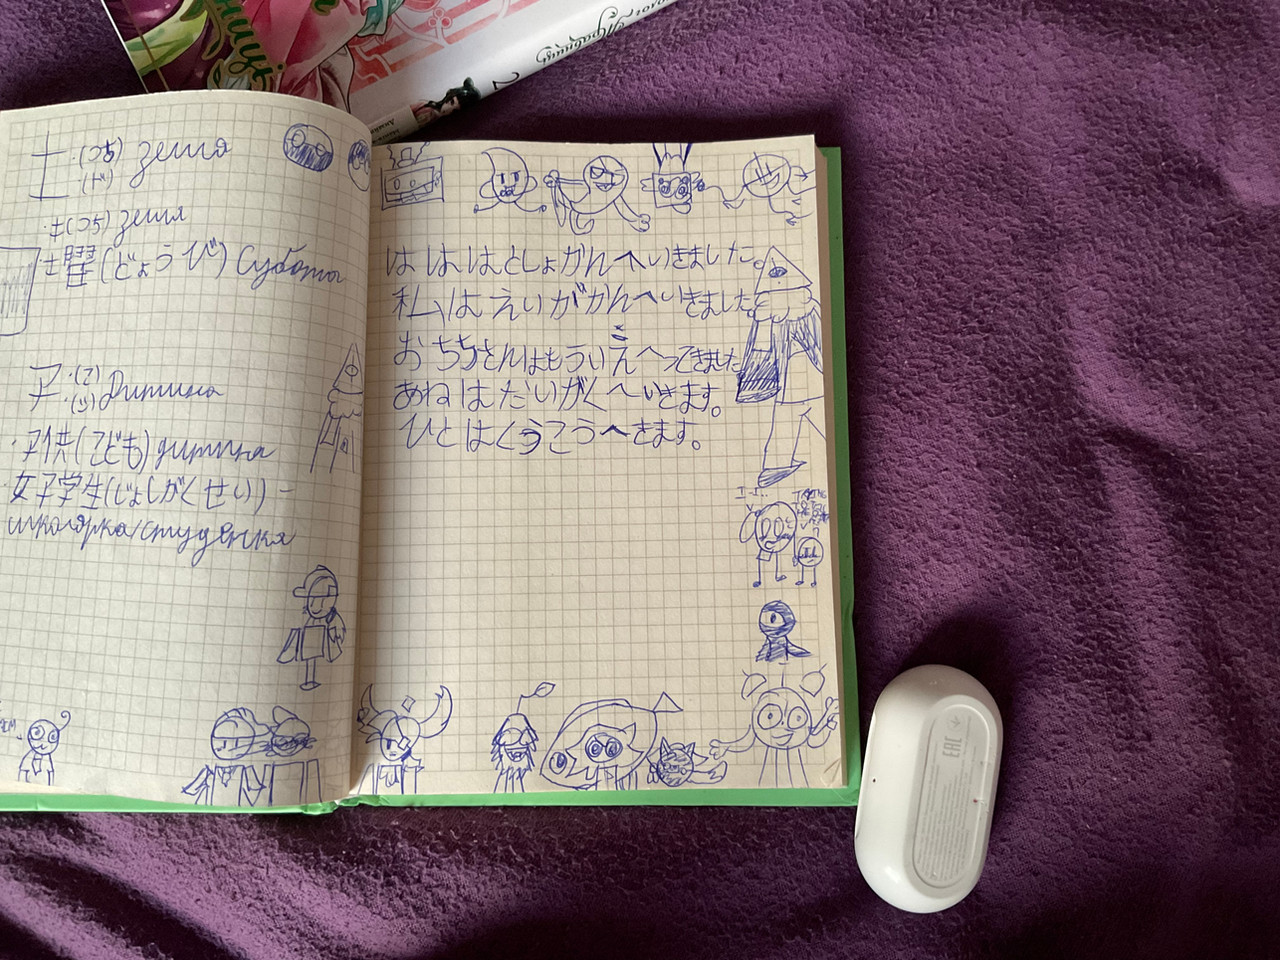 土・(つち) земля
(ド)
・土(つち) земля
土曜(どようび) Субота
子・(こ) Дитина
・(シ)
・子供(こども) дитина
女子学生(じょしがくせい) -
школярка/студентка
はははとしょかんへいきました。
私はえいがかんへいきました。
おちちさんはもういえへってきました
あねはだいがくへいきます。
ひとはくうこうへきます。
I-I..
2
EAC